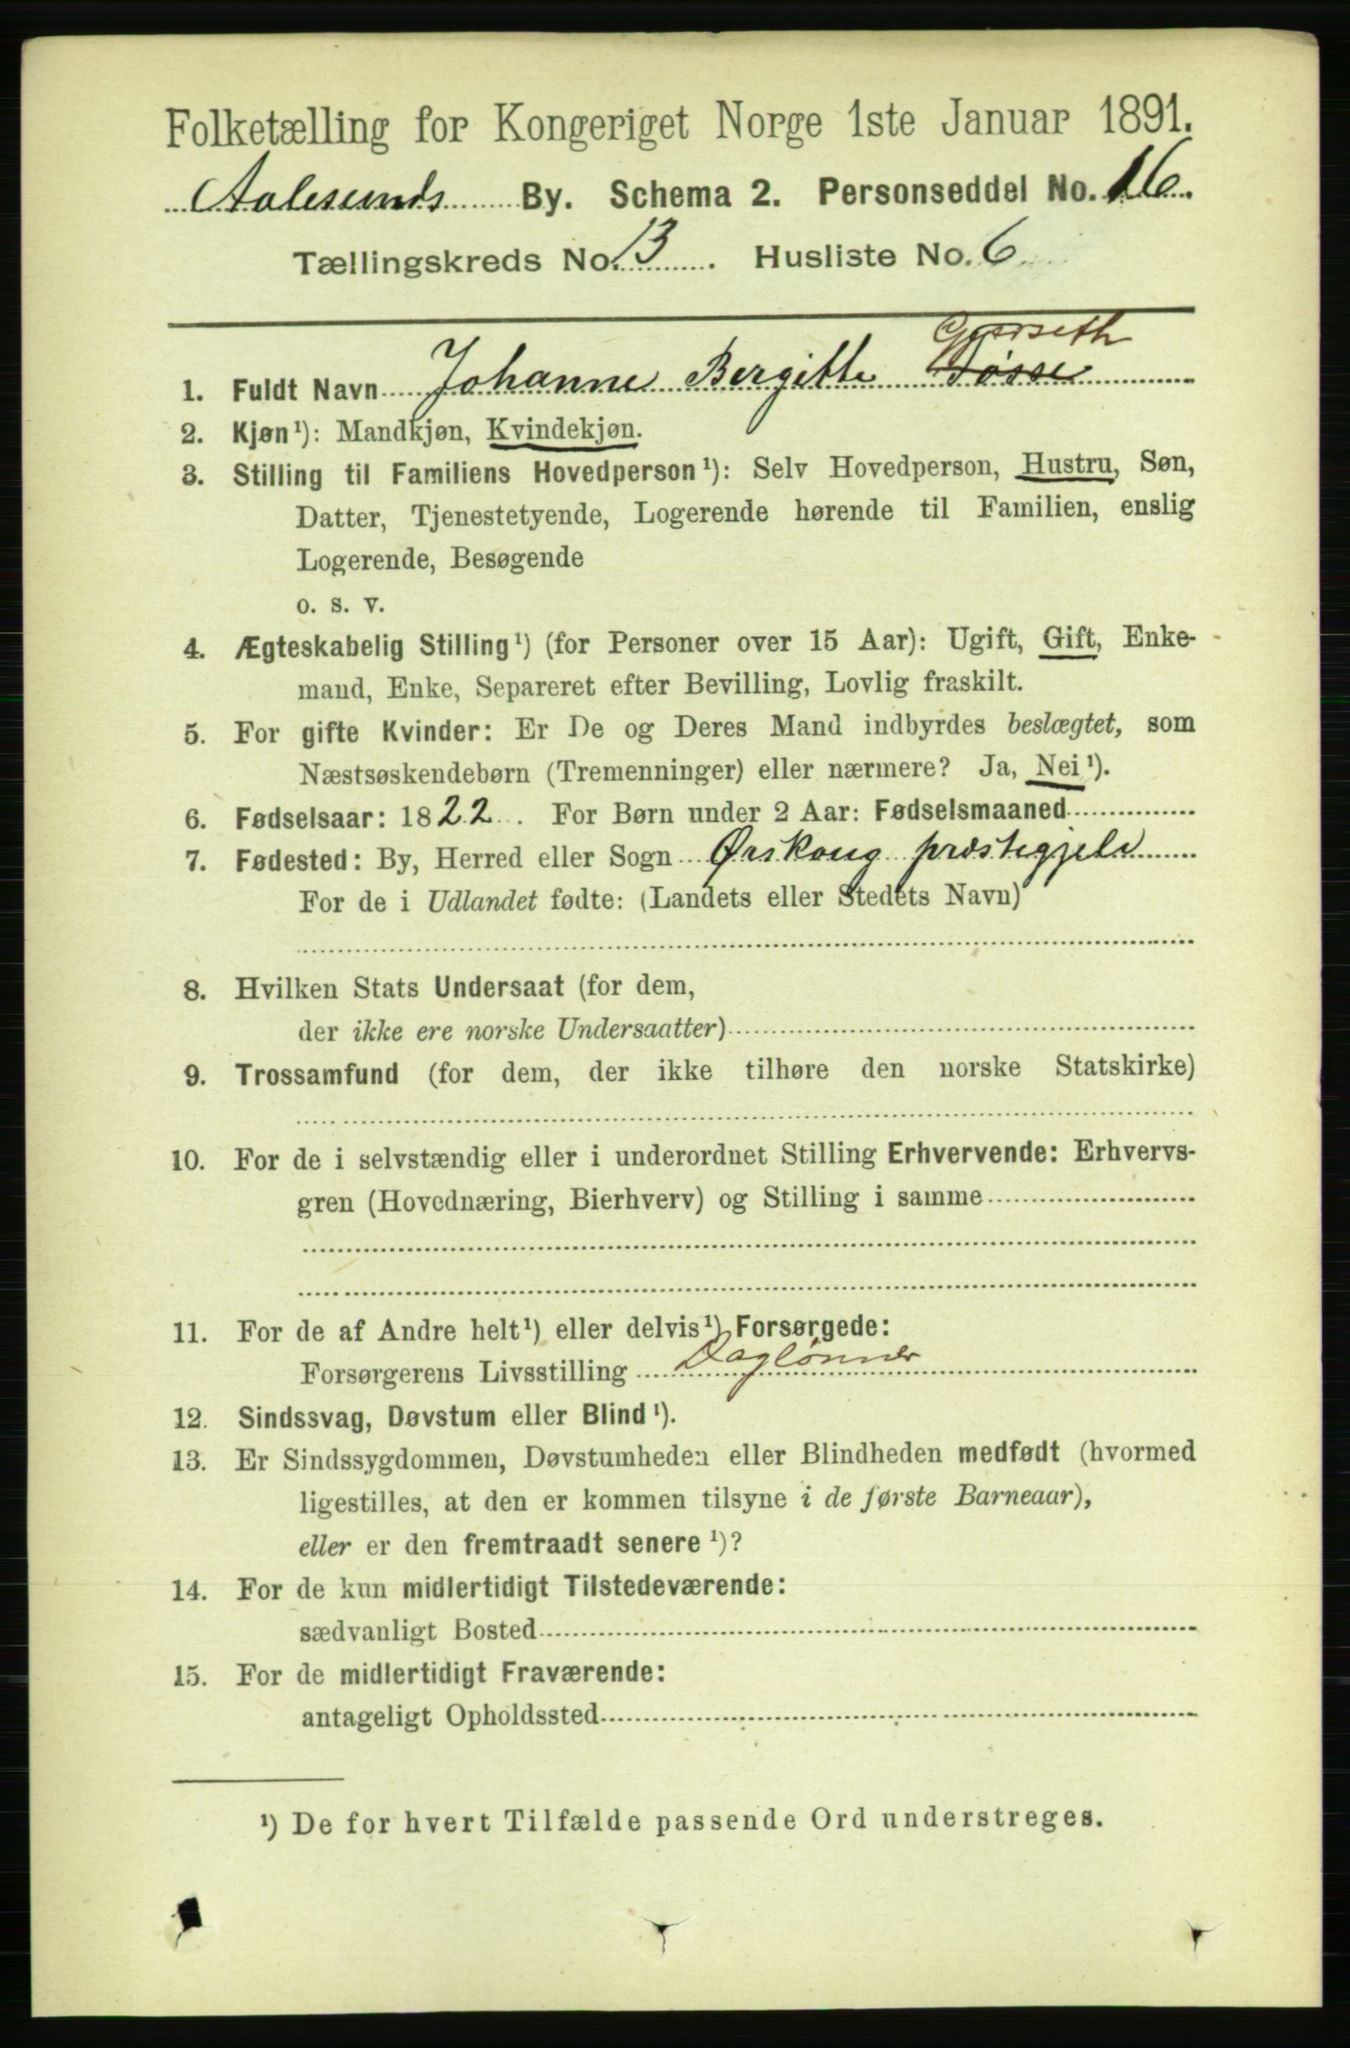 Folketælling for Kongeriget Norge 1ste Januar 1891.
Aalesunds By. Schema 2. Personseddel No. 16.
Tællingskreds No. 13. Husliste No. 6
Gjørseth
1. Fuldt Navn Johanne Bergitte
2. Kjøn¹): Mandkjøn, Kvindekjøn.
3. Stilling til Familiens Hovedperson¹): Selv Hovedperson, Hustru, Søn,
Datter, Tjenestetyende, Logerende hørende til Familien, enslig
Logerende, Besøgende
o. s. v.
4. Ægteskabelig Stilling¹) (for Personer over 15 Aar): Ugift, Gift, Enke-
mand, Enke, Separeret efter Bevilling, Lovlig fraskilt.
5. For gifte Kvinder: Er De og Deres Mand indbyrdes beslægtet, som
Næstsøskendebørn (Tremenninger) eller nærmere? Ja, Nei¹).
6. Fødselsaar: 1822. For Børn under 2 Aar: Fødselsmaaned
7. Fødested: By, Herred eller Sogn Ørskoug præstegjeld
For de i Udlandet fødte: (Landets eller Stedets Navn)
8. Hvilken Stats Undersaat (for dem,
der ikke ere norske Undersaatter)
9. Trossamfund (for dem, der ikke tilhøre den norske Statskirke)
10. For de i selvstændig eller i underordnet Stilling Erhvervende: Erhvervs-
gren (Hovednæring, Bierhverv) og Stilling i samme
11. For de af Andre helt¹) eller delvis¹) Forsørgede:
Forsørgerens Livsstilling Daglønner
12. Sindssvag, Døvstum eller Blind¹).
13. Er Sindssygdommen, Døvstumheden eller Blindheden medfødt (hvormed
ligestilles, at den er kommen tilsyne i de første Barneaar),
eller er den fremtraadt senere¹)?
14. For de kun midlertidigt Tilstedeværende:
sædvanligt Bosted
15. For de midlertidigt Fraværende:
antageligt Opholdssted
¹) De for hvert Tilfælde passende Ord understreges.